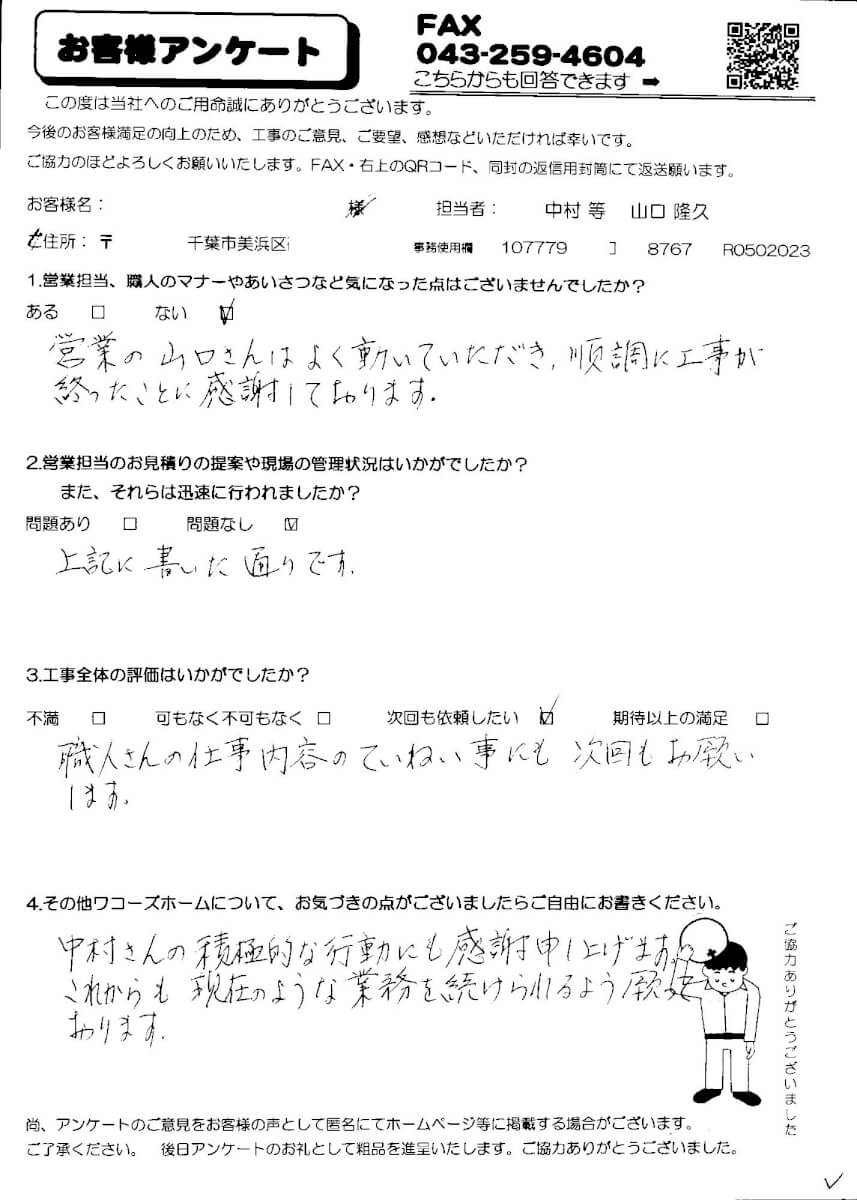 お客様アンケート
FAX
043-259-4604
こちらからも回答できます ➡
この度は当社へのご用命誠にありがとうございます。
今後のお客様満足の向上のため、工事のご意見、ご要望、感想などいただければ幸いです。
ご協力のほどよろしくお願いいたします。FAX・右上のQRコード、同封の返信用封筒にて返送願います。
お客様名: 様 担当者: 中村 等 山口 隆久
住所: 〒 千葉市美浜区 事務使用欄 107779 8767 R0502023
1.営業担当、職人のマナーやあいさつなど気になった点はございませんでしたか?
ある □ ない ☑
営業の山口さんはよく動いていただき、順調に工事が
終ったことに感謝しております。
2.営業担当のお見積りの提案や現場の管理状況はいかがでしたか?
また、それらは迅速に行われましたか?
問題あり □ 問題なし ☑
上記に書いた通りです。
3.工事全体の評価はいかがでしたか?
不満 □ 可もなく不可もなく □ 次回も依頼したい ☑ 期待以上の満足 □
職人さんの仕事内容のていねい事にも次回もお願い
します。
4.その他ワコーズホームについて、お気づきの点がございましたらご自由にお書きください。
中村さんの積極的な行動にも感謝申し上げます。
これからも現在のような業務を続けられるよう願って
おります。
ご協力ありがとうございました
尚、アンケートのご意見をお客様の声として匿名にてホームページ等に掲載する場合がございます。
ご了承ください。 後日アンケートのお礼として粗品を進呈いたします。ご協力ありがとうございました。